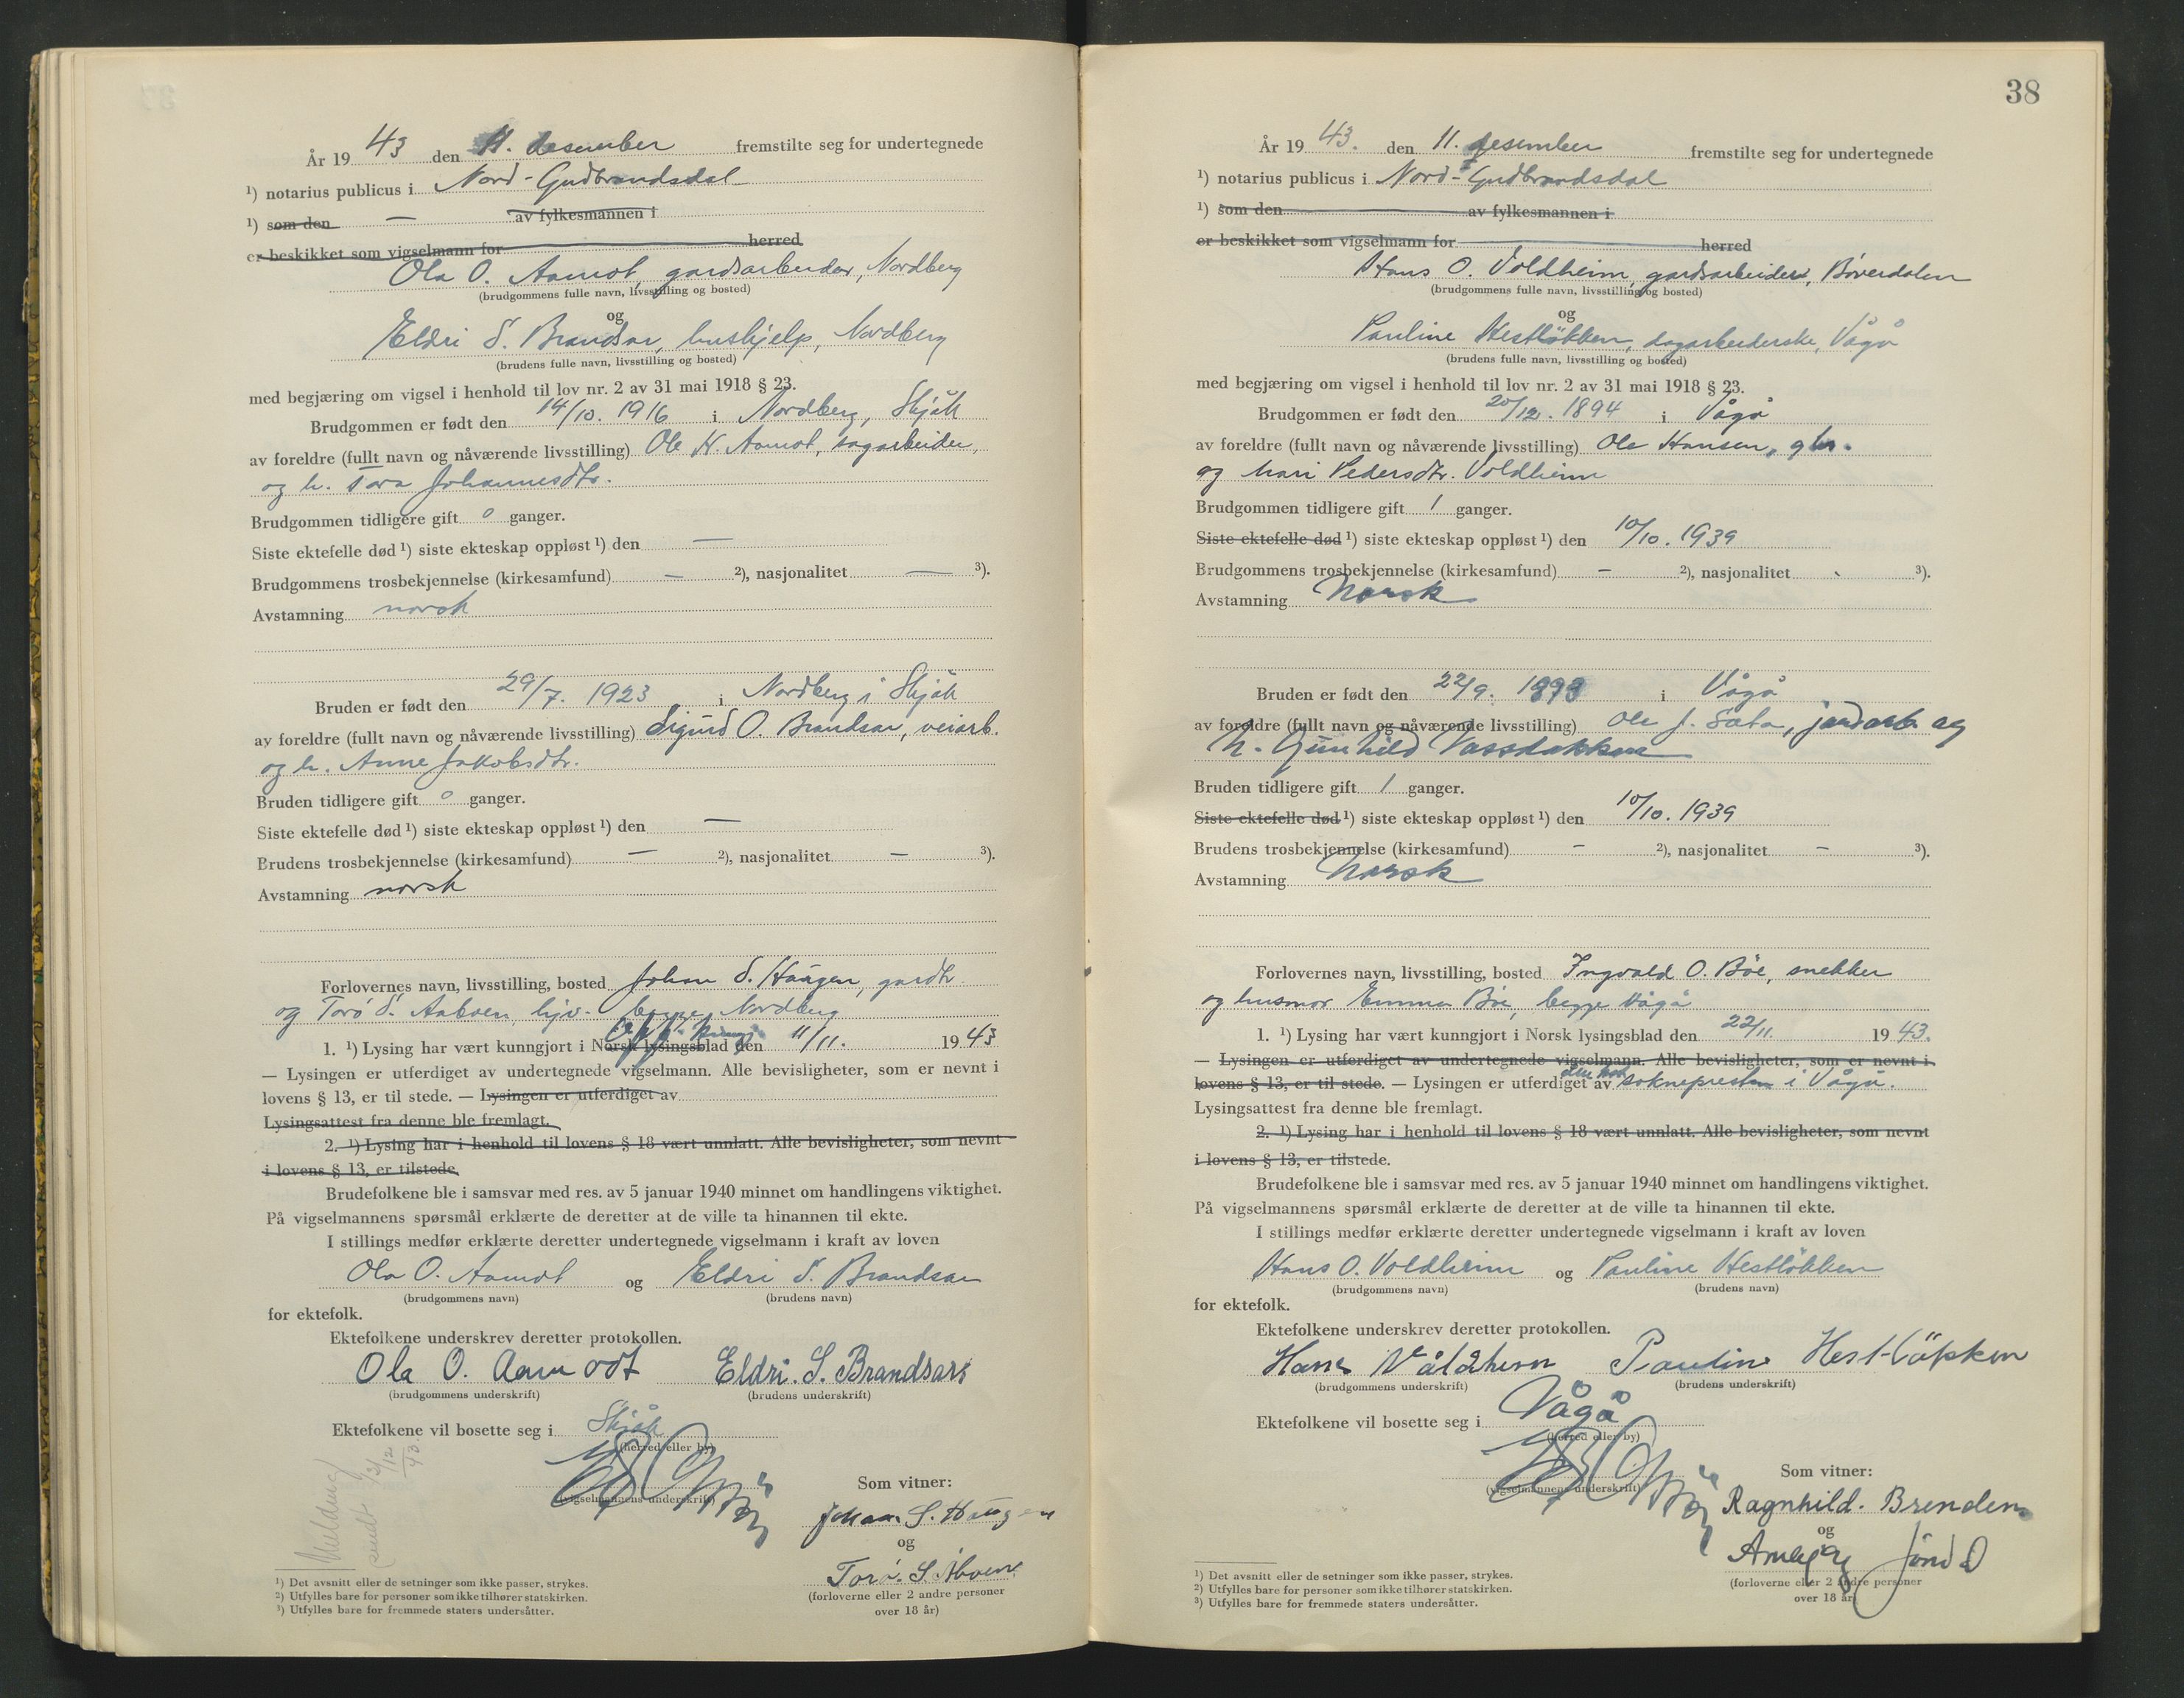 År 19 43 den 11. desember fremstilte seg for undertegnede
¹) notarius publicus i Nord-Gudbrandsdal
¹) som den — av fylkesmannen i
er beskikket som vigselmann for herred
Ola O. Aamot, gardsarbeider, Nordberg
(brudgommens fulle navn, livsstilling og bosted)
og
Eldri S. Brandsar, hushjelp, Nordberg
(brudens fulle navn, livsstilling og bosted)
med begjæring om vigsel i henhold til lov nr. 2 av 31 mai 1918 § 23.
Brudgommen er født den 14/10. 1916 i Nordberg, Skjåk
av foreldre (fullt navn og nåværende livsstilling) Ole K. Aamot, sagarbeider,
og h. Tora Johannesdtr.
Brudgommen tidligere gift 0 ganger.
Siste ektefelle død ¹) siste ekteskap oppløst ¹) den —
Brudgommens trosbekjennelse (kirkesamfund) — ²), nasjonalitet — ³).
Avstamning norsk
Bruden er født den 29/7. 1923 i Nordberg i Skjåk
av foreldre (fullt navn og nåværende livsstilling) Sigurd O. Brandsar, veiarb.
og h. Anne Jakobsdtr.
Bruden tidligere gift 0 ganger.
Siste ektefelle død ¹) siste ekteskap oppløst ¹) den —
Brudens trosbekjennelse (kirkesamfund) — ²), nasjonalitet — ³).
Avstamning norsk
Forlovernes navn, livsstilling, bosted Johan S. Haugen, gardbr.
og Torø S. begge Nordberg
1. ¹) Lysing har vært kunngjort i Norsk lysingsblad den 11/11. 19 43
— Lysingen er utferdiget av undertegnede vigselmann. Alle bevisligheter, som er nevnt i
lovens § 13, er til stede. — Lysingen er utferdiget av
Lysingsattest fra denne ble fremlagt.
2. ¹) Lysing har i henhold til lovens § 18 vært unnlatt. Alle bevisligheter, som nevnt
i lovens § 13, er tilstede.
Brudefolkene ble i samsvar med res. av 5 januar 1940 minnet om handlingens viktighet.
På vigselmannens spørsmål erklærte de deretter at de ville ta hinannen til ekte.
I stillings medfør erklærte deretter undertegnede vigselmann i kraft av loven
Ola O. Aamot og Eldri S. Brandsar
(brudgommens navn) (brudens navn)
for ektefolk.
Ektefolkene underskrev deretter protokollen.
Ola O. Aamodt Eldri. S. Brandsar
(brudgommens underskrift) (brudens underskrift)
Ektefolkene vil bosette seg i Skjåk
(herred eller by)
(vigselmannens underskrift)
Melding sendt 12/12 43.
Som vitner:
Johan S. Haugen
og
Torø. S.
(forloverne eller 2 andre personer
over 18 år)
¹) Det avsnitt eller de setninger som ikke passer, strykes.
²) Utfylles bare for personer som ikke tilhører statskirken.
³) Utfylles bare for fremmede staters undersåtter.
38
År 19 43. den 11. desember fremstilte seg for undertegnede
¹) notarius publicus i Nord-Gudbrandsdal
¹) som den av fylkesmannen i
er beskikket som vigselmann for herred
Hans O. Voldheim, gardsarbeider, Bøverdalen
(brudgommens fulle navn, livsstilling og bosted)
og
Pauline Hestløkken, dagarbeiderske, Vågå
(brudens fulle navn, livsstilling og bosted)
med begjæring om vigsel i henhold til lov nr. 2 av 31 mai 1918 § 23.
Brudgommen er født den 20/12. 1894 i Vågå
av foreldre (fullt navn og nåværende livsstilling) Ole Hansen, gbr.
og Mari Pedersdtr. Voldheim
Brudgommen tidligere gift 1 ganger.
Siste ektefelle død ¹) siste ekteskap oppløst ¹) den 10/10. 1939
Brudgommens trosbekjennelse (kirkesamfund) — ²), nasjonalitet ³).
Avstamning Norsk
Bruden er født den 22/9. 1893 i Vågå
av foreldre (fullt navn og nåværende livsstilling) Ole J. Sata, jordarb og
h. Gunhild
Bruden tidligere gift 1 ganger.
Siste ektefelle død ¹) siste ekteskap oppløst ¹) den 10/10. 1939
Brudens trosbekjennelse (kirkesamfund) — ²), nasjonalitet — ³).
Avstamning Norsk
Forlovernes navn, livsstilling, bosted Ingvald O. Bøe, snekker
og husmor Emma Bøe, begge Vågå
1. ¹) Lysing har vært kunngjort i Norsk lysingsblad den 22/11. 19 43.
— Lysingen er utferdiget av undertegnede vigselmann. Alle bevisligheter, som er nevnt i
lovens § 13, er til stede. — Lysingen er utferdiget av soknepresten i Vågå.
Lysingsattest fra denne ble fremlagt.
2. ¹) Lysing har i henhold til lovens § 18 vært unnlatt. Alle bevisligheter, som nevnt
i lovens § 13, er tilstede.
Brudefolkene ble i samsvar med res. av 5 januar 1940 minnet om handlingens viktighet.
På vigselmannens spørsmål erklærte de deretter at de ville ta hinannen til ekte.
I stillings medfør erklærte deretter undertegnede vigselmann i kraft av loven
Hans O. Voldheim og Pauline Hestløkken
(brudgommens navn) (brudens navn)
for ektefolk.
Ektefolkene underskrev deretter protokollen.
Hans Våldheim Paulin Hestløkken
(brudgommens underskrift) (brudens underskrift)
Ektefolkene vil bosette seg i Vågå
(herred eller by)
(vigselmannens underskrift)
Som vitner:
Ragnhild. Brenden
og
(forloverne eller 2 andre personer
over 18 år)
¹) Det avsnitt eller de setninger som ikke passer, strykes.
²) Utfylles bare for personer som ikke tilhører statskirken.
³) Utfylles bare for fremmede staters undersåtter.